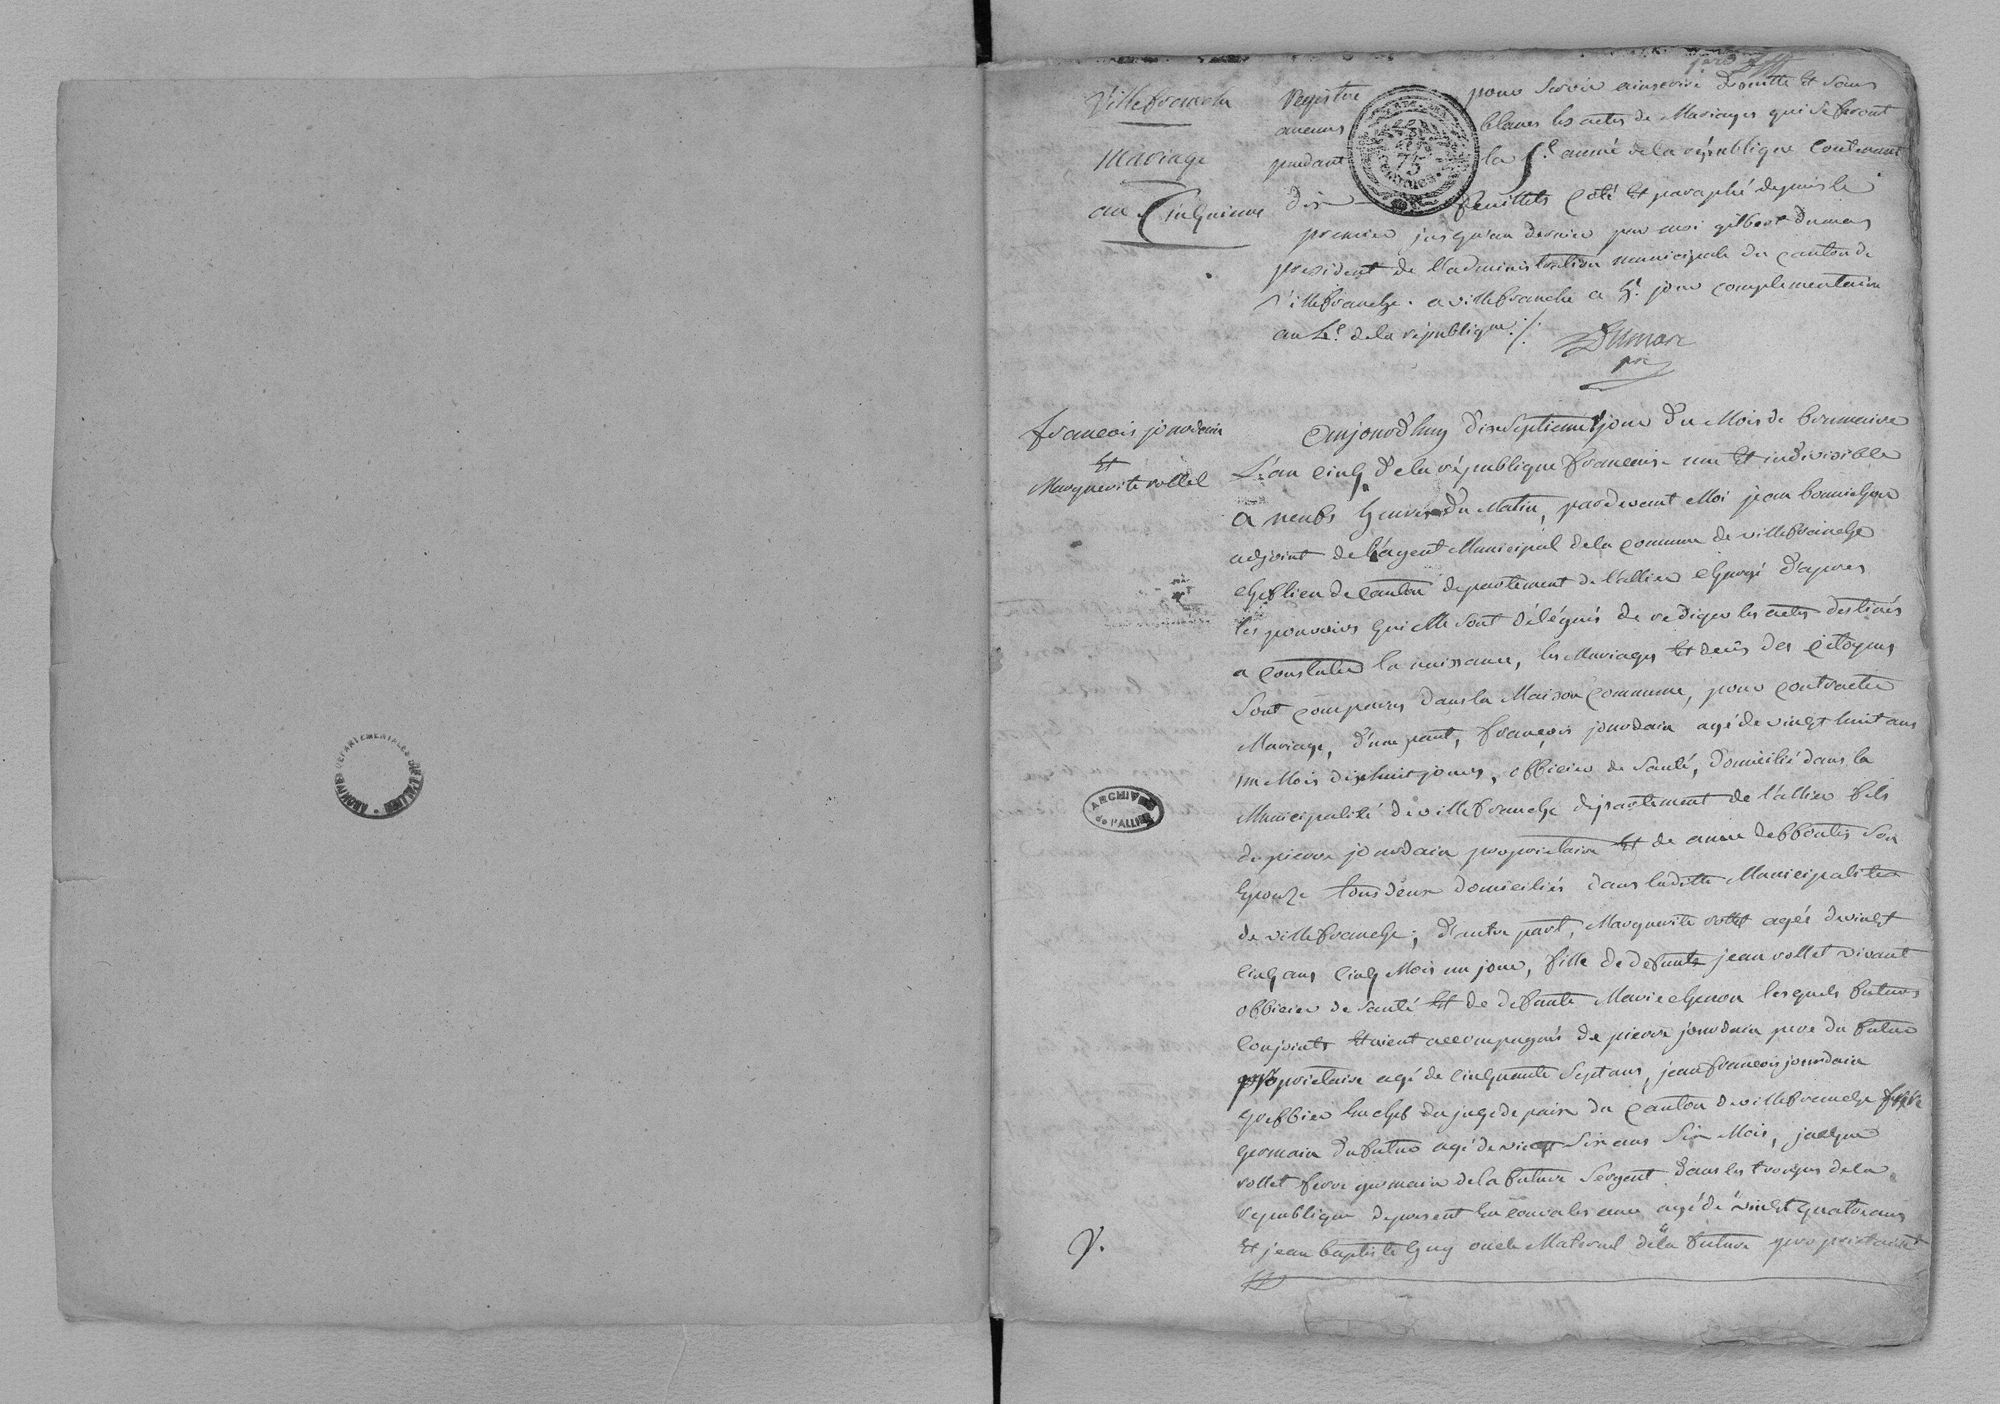 ARCHIVES DEPARTEMENTALES DE L'ALLIER
Villefranche
Mariage
an Cinquieme
Registre pour servir a inscrire de suitte Et sans
aucuns blancs les actes de Mariages qui se feront
pendant la 5e année de la république Contenant
dix feuillets Coté Et paraphé depuis le
premier jusqu'au dernier par moi gilbert dumas
president de l'administration municipale du canton de
Villefranche. a villefranche ce 5e jour complementaire
an 4e de la république ./.
75
françois jourdain
Et
Marguerite rollet
Aujourd'huy dixseptieme jour du Mois de brumaire
L'an Cinq de la république francaise une Et indivisible
a neufs heures du Matin, pardevant Moi jean bonnichon
adjoint de l'agent Municipal de la commune de villefranche
chef lieu de Canton departement de l'allier chargé d'apres
les pouvoirs qui Me sont délégués de rediger les actes destinés
a Constater la naissance, les Mariages Et decès des Citoyens
Sont comparus dans la Maison Commune, pour contracter
Mariage, d'une part, françois jourdain agé de vingt huit ans
un Mois dixhuit jours, officier de Santé, domicilié dans la
Municipalité de villefranche departement de l'allier fils
de pierre jourdain proprietaire Et de anne deffontis Son
Epouze tous deux domiciliés dans ladite Municipalité
de villefranche; d'autre part, Marguerite rollet agée de vingt
Cinq ans Cinq Mois un jour, fille de defunts jean rollet vivant
officier de Santé Et de defunte Marie chenon lesquels futurs
Conjoints Etoient accompagnés de pierre jourdain pere du futur
proprietaire agé de Cinquante Sept ans, jean françois jourdain
greffier En chef du juge de paix du Canton de villefranche frere
germain du futur agé de vingt Six ans Six Mois, jacque
rollet frere germain de la future Sergent dans les troupes de la
republique depresent En convalescence agé de vingt quatre ans
Et jean baptiste Guy oncle Maternel de la future proprietaire
ARCHIVES
de l'ALLIER